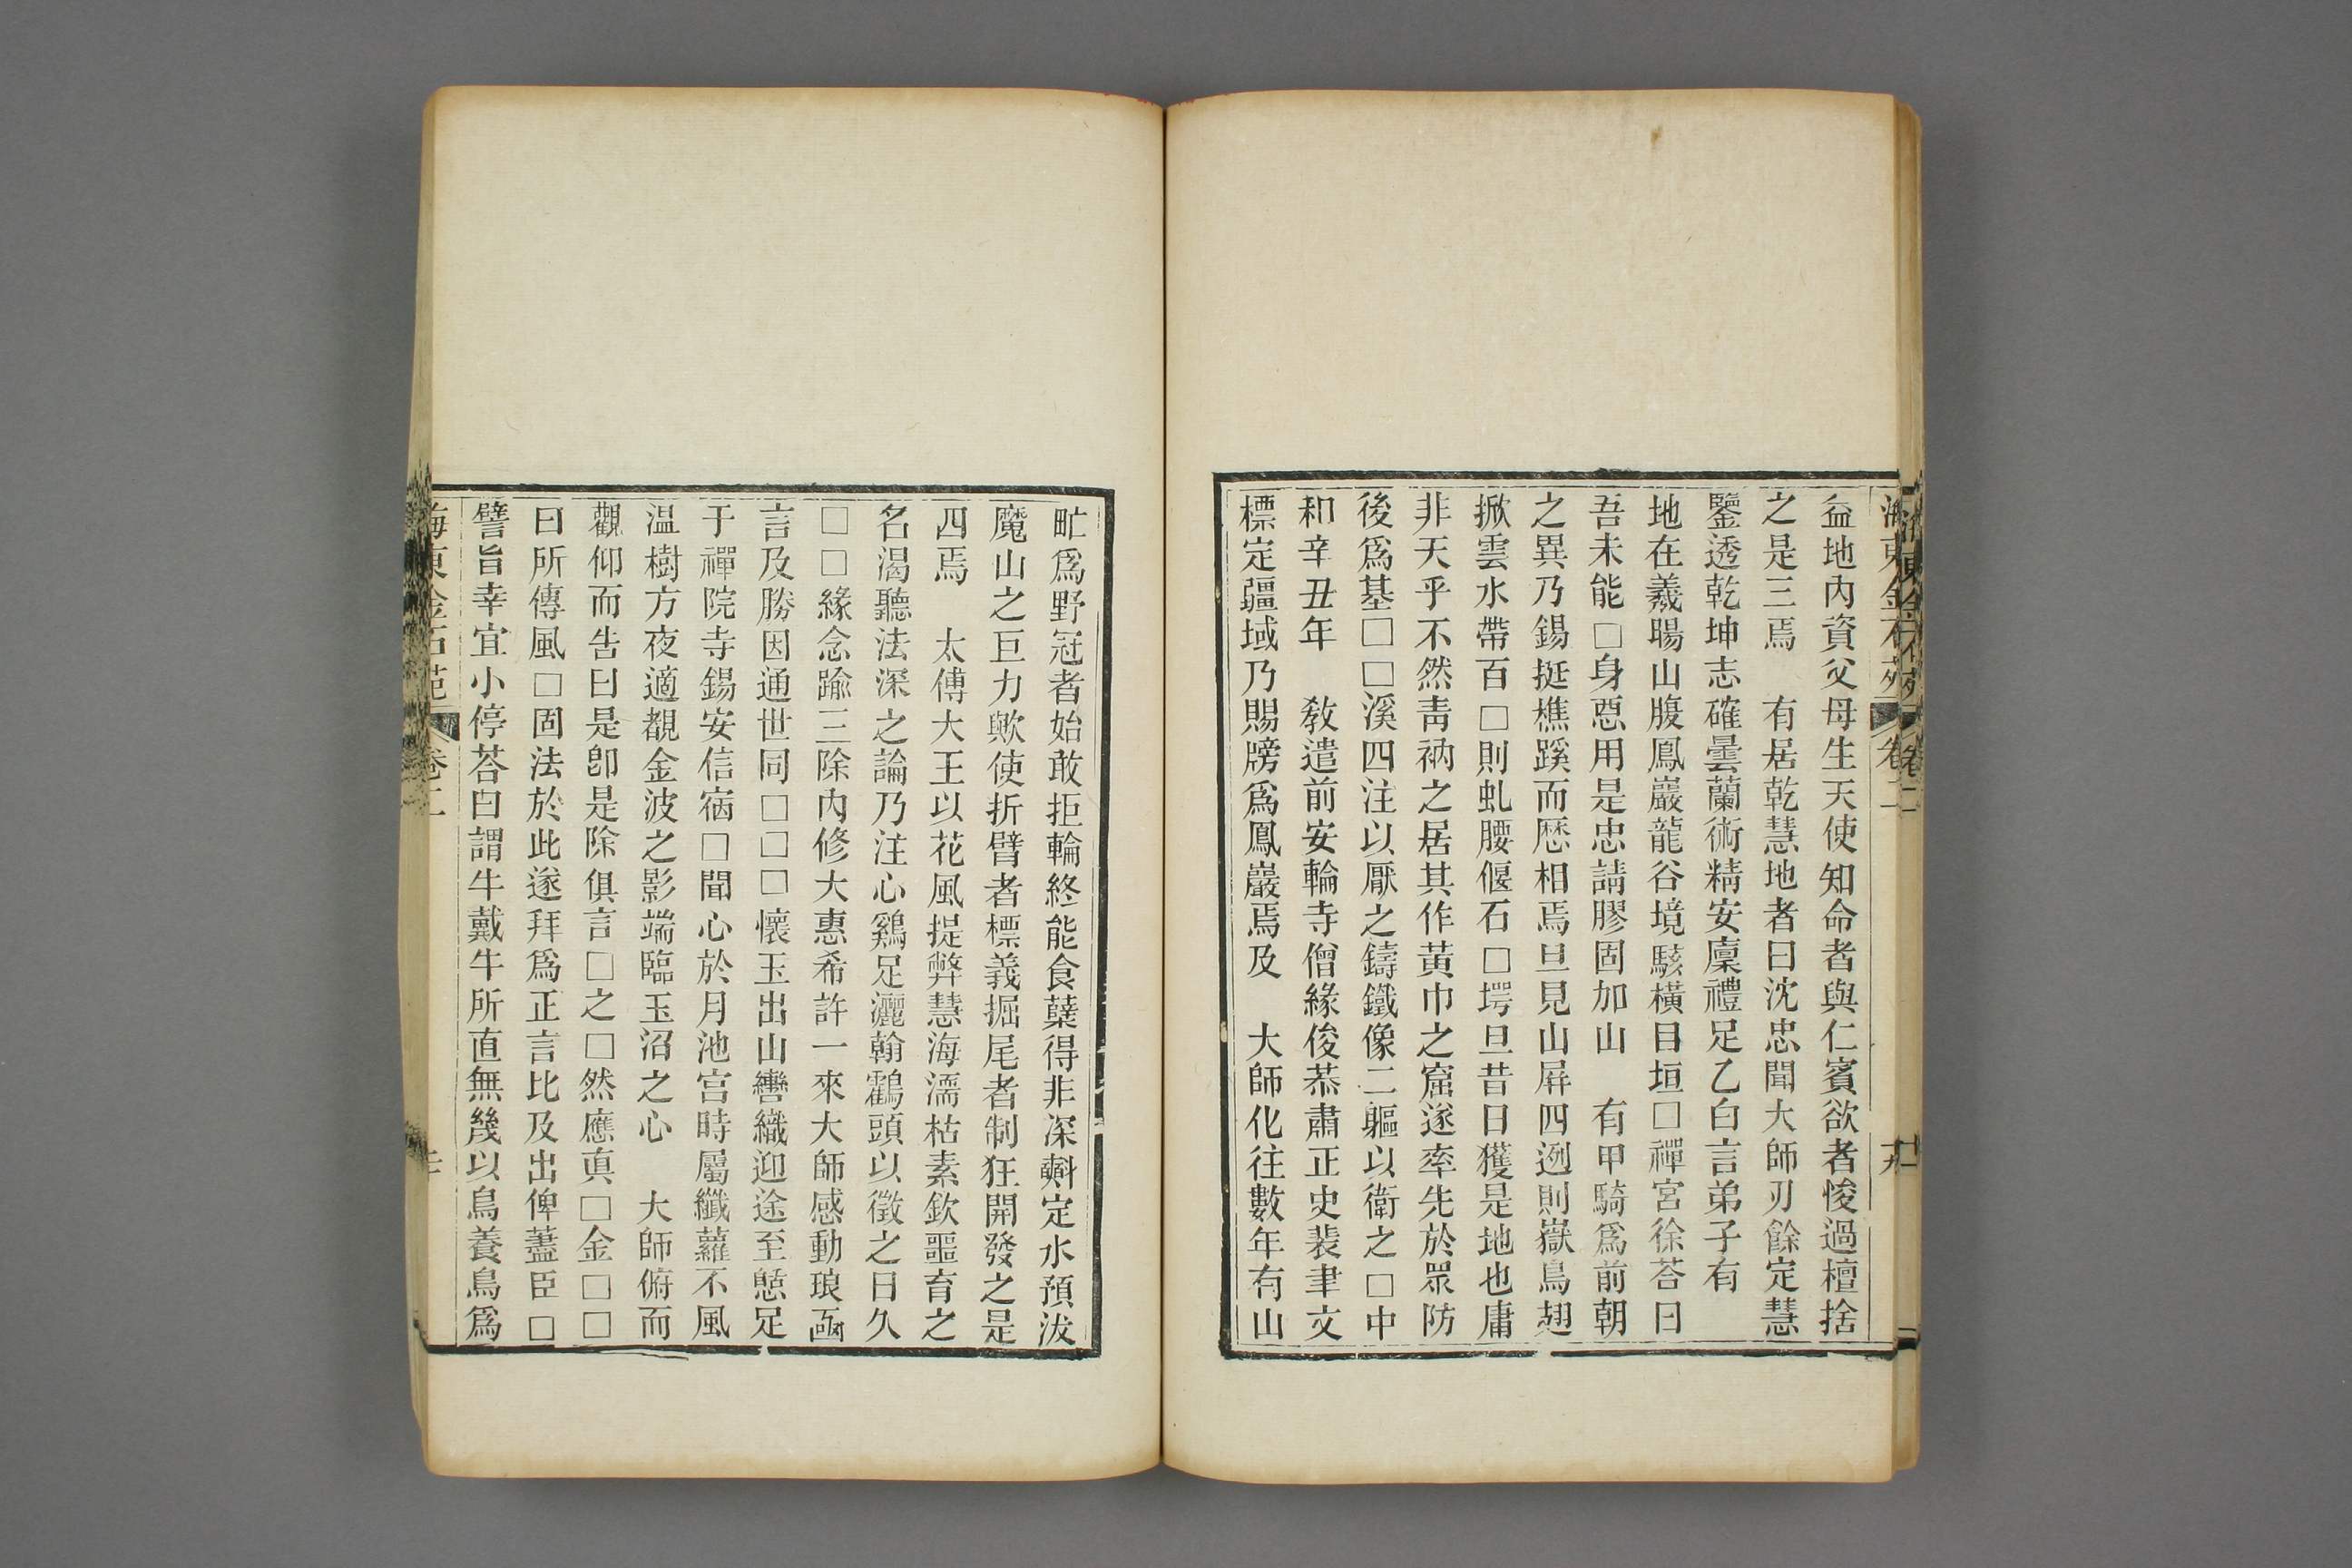 海東金石苑 卷二 十九
益地內資父母生天使知命者與仁賓欲者悛過檀捨
之是三焉 有居乾慧地者曰沈忠聞大師刃餘定慧
鑒透乾坤志確曇蘭術精安廩禮足乙白言弟子有
地在羲暘山腹鳳巖龍谷境駭橫目垣□禪宮徐荅曰
吾未能□身惡用是忠請膠固加山 有甲騎爲前朝
之異乃錫挺樵蹊而歷相焉旦見山屛四迾則嶽鳥翅
掀雲水帶百□則虬腰偃石□堮旦昔日獲是地也庸
非天乎不然靑衲之居其作黃巾之窟遂率先於眾防
後爲基□□溪四注以厭之鑄鐵像二軀以衛之□中
和辛丑年 敎遣前安輪寺僧緣俊恭肅正史裴聿文
標定疆域乃賜牓爲鳳巖焉及 大師化往數年有山
甿爲野冠者始敢拒輪終能食蘖得非深𣂏定水預泼
魔山之巨力歟使折臂者標義掘尾者制狂開發之是
四焉 太傅大王以花風提弊慧海濡枯素欽𠾅育之
名渴聽法深之論乃注心鷄足灑翰鸖頭以徵之日久
□□緣念踰三除內修大惠希許一來大師感動琅凾
言及勝因通世同□□□懷玉出山轡織迎途至憇足
于禪院寺錫安信宿□聞心於月池宮時屬纖蘿不風
温樹方夜適覩金波之影端臨玉沼之心 大師俯而
觀仰而告曰是卽是除俱言□之□然應眞□金□□
曰所傳風□固法於此遂拜爲正言比及出俾藎臣□
譬旨幸宜小停荅曰謂牛戴牛所直無幾以鳥養鳥爲
海東金石苑 卷二